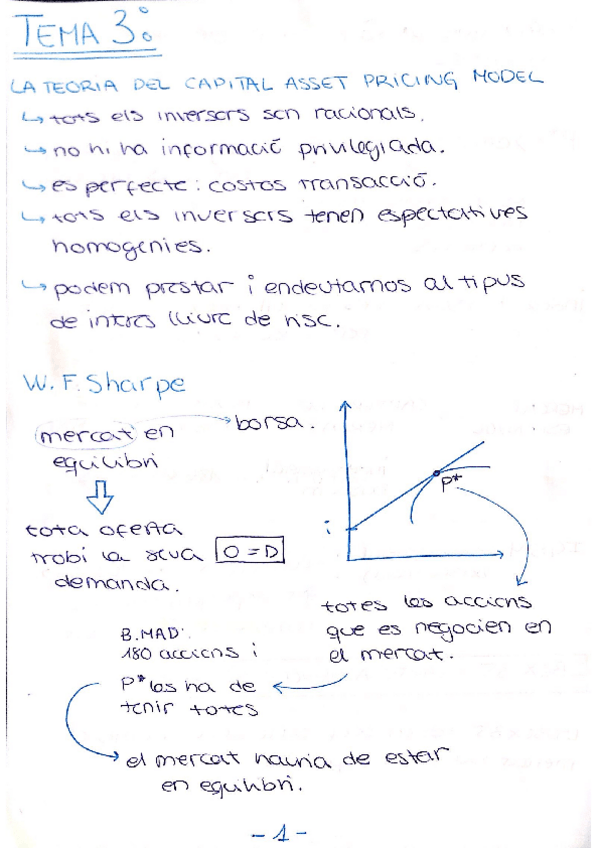 TEMA 3:
LA TEORIA DEL CAPITAL ASSET PRICING MODEL
↳ tots els inversors son racionals.
↳ no hi ha informació privilegiada.
↳ es perfecte: costos transacció.
↳ tots els inversors tenen espectatives
homogenies.
↳ podem prestar i endeutarnos al tipus
de interes lliure de risc.
W. F. Sharpe
mercat en → borsa.
equilibri
tota oferta
trobi la seua O = D
demanda.
P*
i
totes les accions
que es negocien en
el mercat.
B. MAD:
180 accions i
P* las ha de
tenir totes
el mercat hauria de estar
en equilibri.
- 1 -